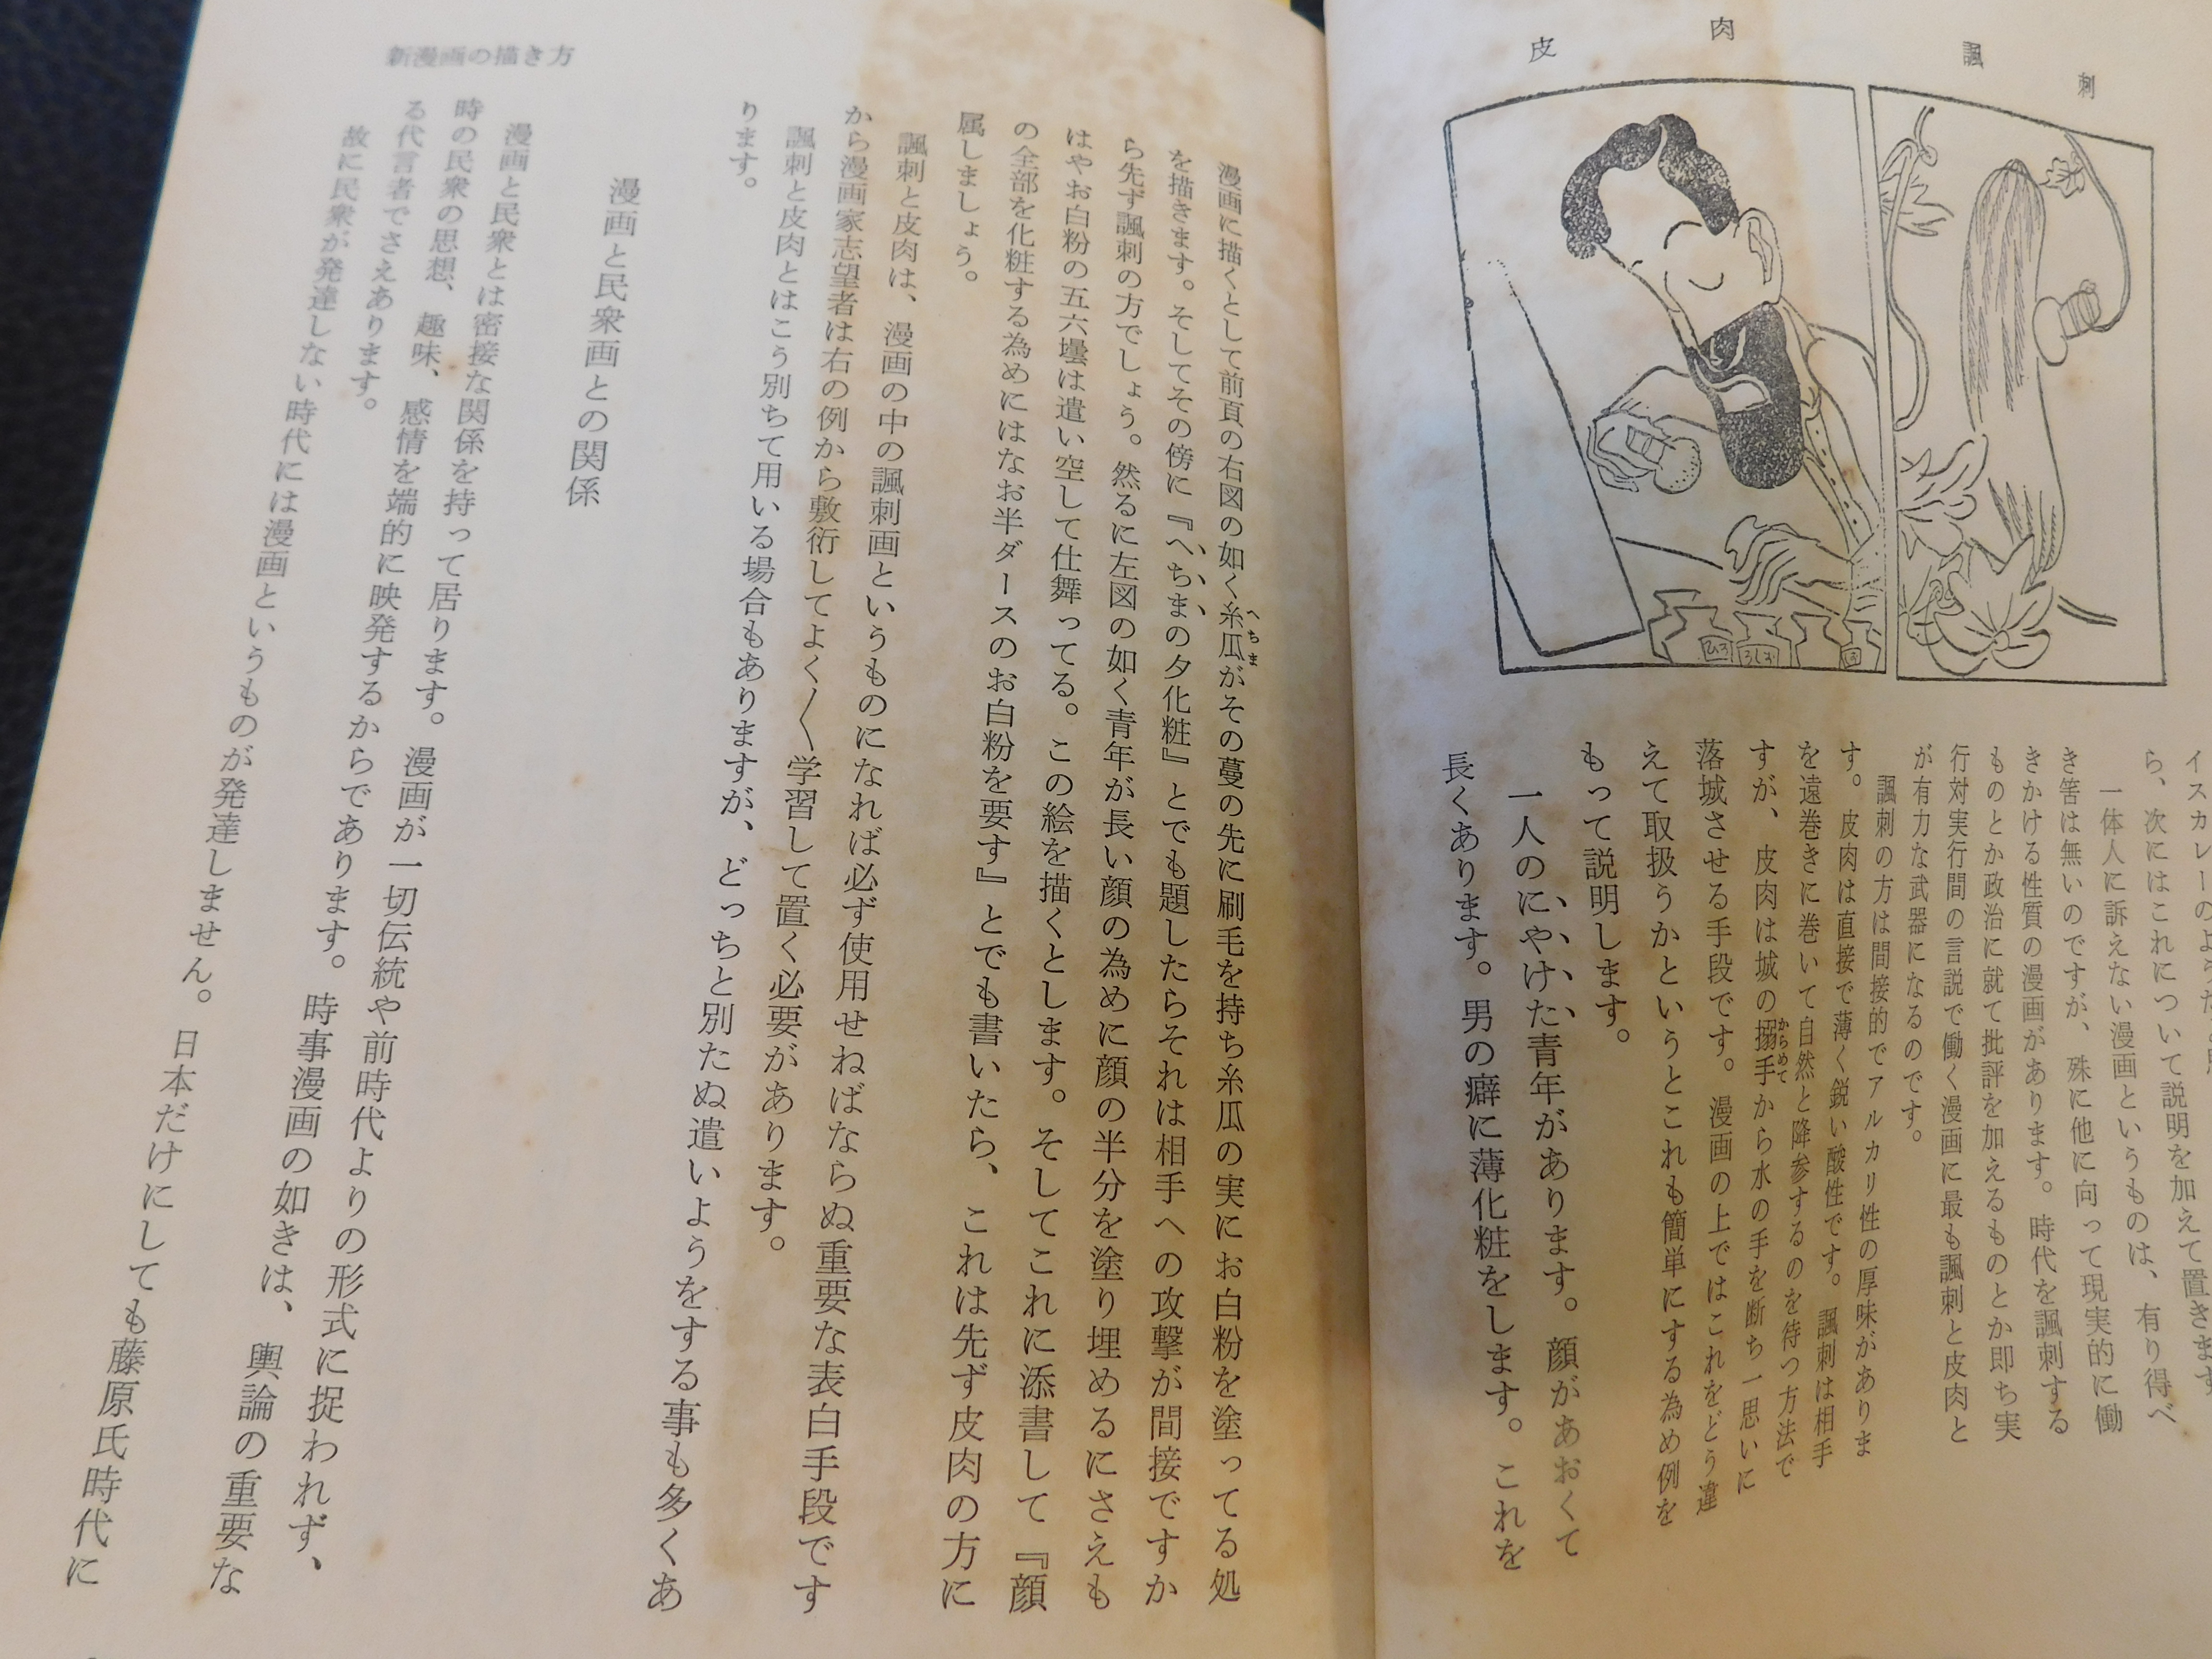 諷刺
皮肉
ひろ
ら、次にはこれについて説明を加えて置きます
一体人に訴えない漫画というものは、有り得べ
き筈は無いのですが、殊に他に向って現実的に働
きかける性質の漫画があります。時代を諷刺する
ものとか政治に就て批評を加えるものとか即ち実
行対実行間の言説で働く漫画に最も諷刺と皮肉と
が有力な武器になるのです。
諷刺の方は間接的でアルカリ性の厚味がありま
す。皮肉は直接で薄く鋭い酸性です。諷刺は相手
を遠巻きに巻いて自然と降参するのを待つ方法で
すが、皮肉は城の搦手からめてから水の手を断ち一思いに
落城させる手段です。漫画の上ではこれをどう違
えて取扱うかというとこれも簡単にする為め例を
もって説明します。
一人のにやけた青年があります。顔があおくて
長くあります。男の癖に薄化粧をします。これを
漫画に描くとして前頁の右図の如く糸瓜へちまがその蔓の先に刷毛を持ち糸瓜の実にお白粉を塗ってる処
を描きます。そしてその傍に『へちまの夕化粧』とでも題したらそれは相手への攻撃が間接ですか
ら先ず諷刺の方でしょう。然るに左図の如く青年が長い顔の為めに顔の半分を塗り埋めるにさえも
はやお白粉の五六壜は遣い空して仕舞ってる。この絵を描くとします。そしてこれに添書して『顔
の全部を化粧する為めにはなお半ダースのお白粉を要す』とでも書いたら、これは先ず皮肉の方に
属しましょう。
諷刺と皮肉は、漫画の中の諷刺画というものになれば必ず使用せねばならぬ重要な表白手段です
から漫画家志望者は右の例から敷衍してよく〳〵学習して置く必要があります。
諷刺と皮肉とはこう別ちて用いる場合もありますが、どっちと別たぬ遣いようをする事も多くあ
ります。
漫画と民衆画との関係
漫画と民衆とは密接な関係を持って居ります。漫画が一切伝統や前時代よりの形式に捉われず、
時の民衆の思想、趣味、感情を端的に映発するからであります。時事漫画の如きは、輿論の重要な
る代言者でさえあります。
故に民衆が発達しない時代には漫画というものが発達しません。日本だけにしても藤原氏時代に
新漫画の描き方